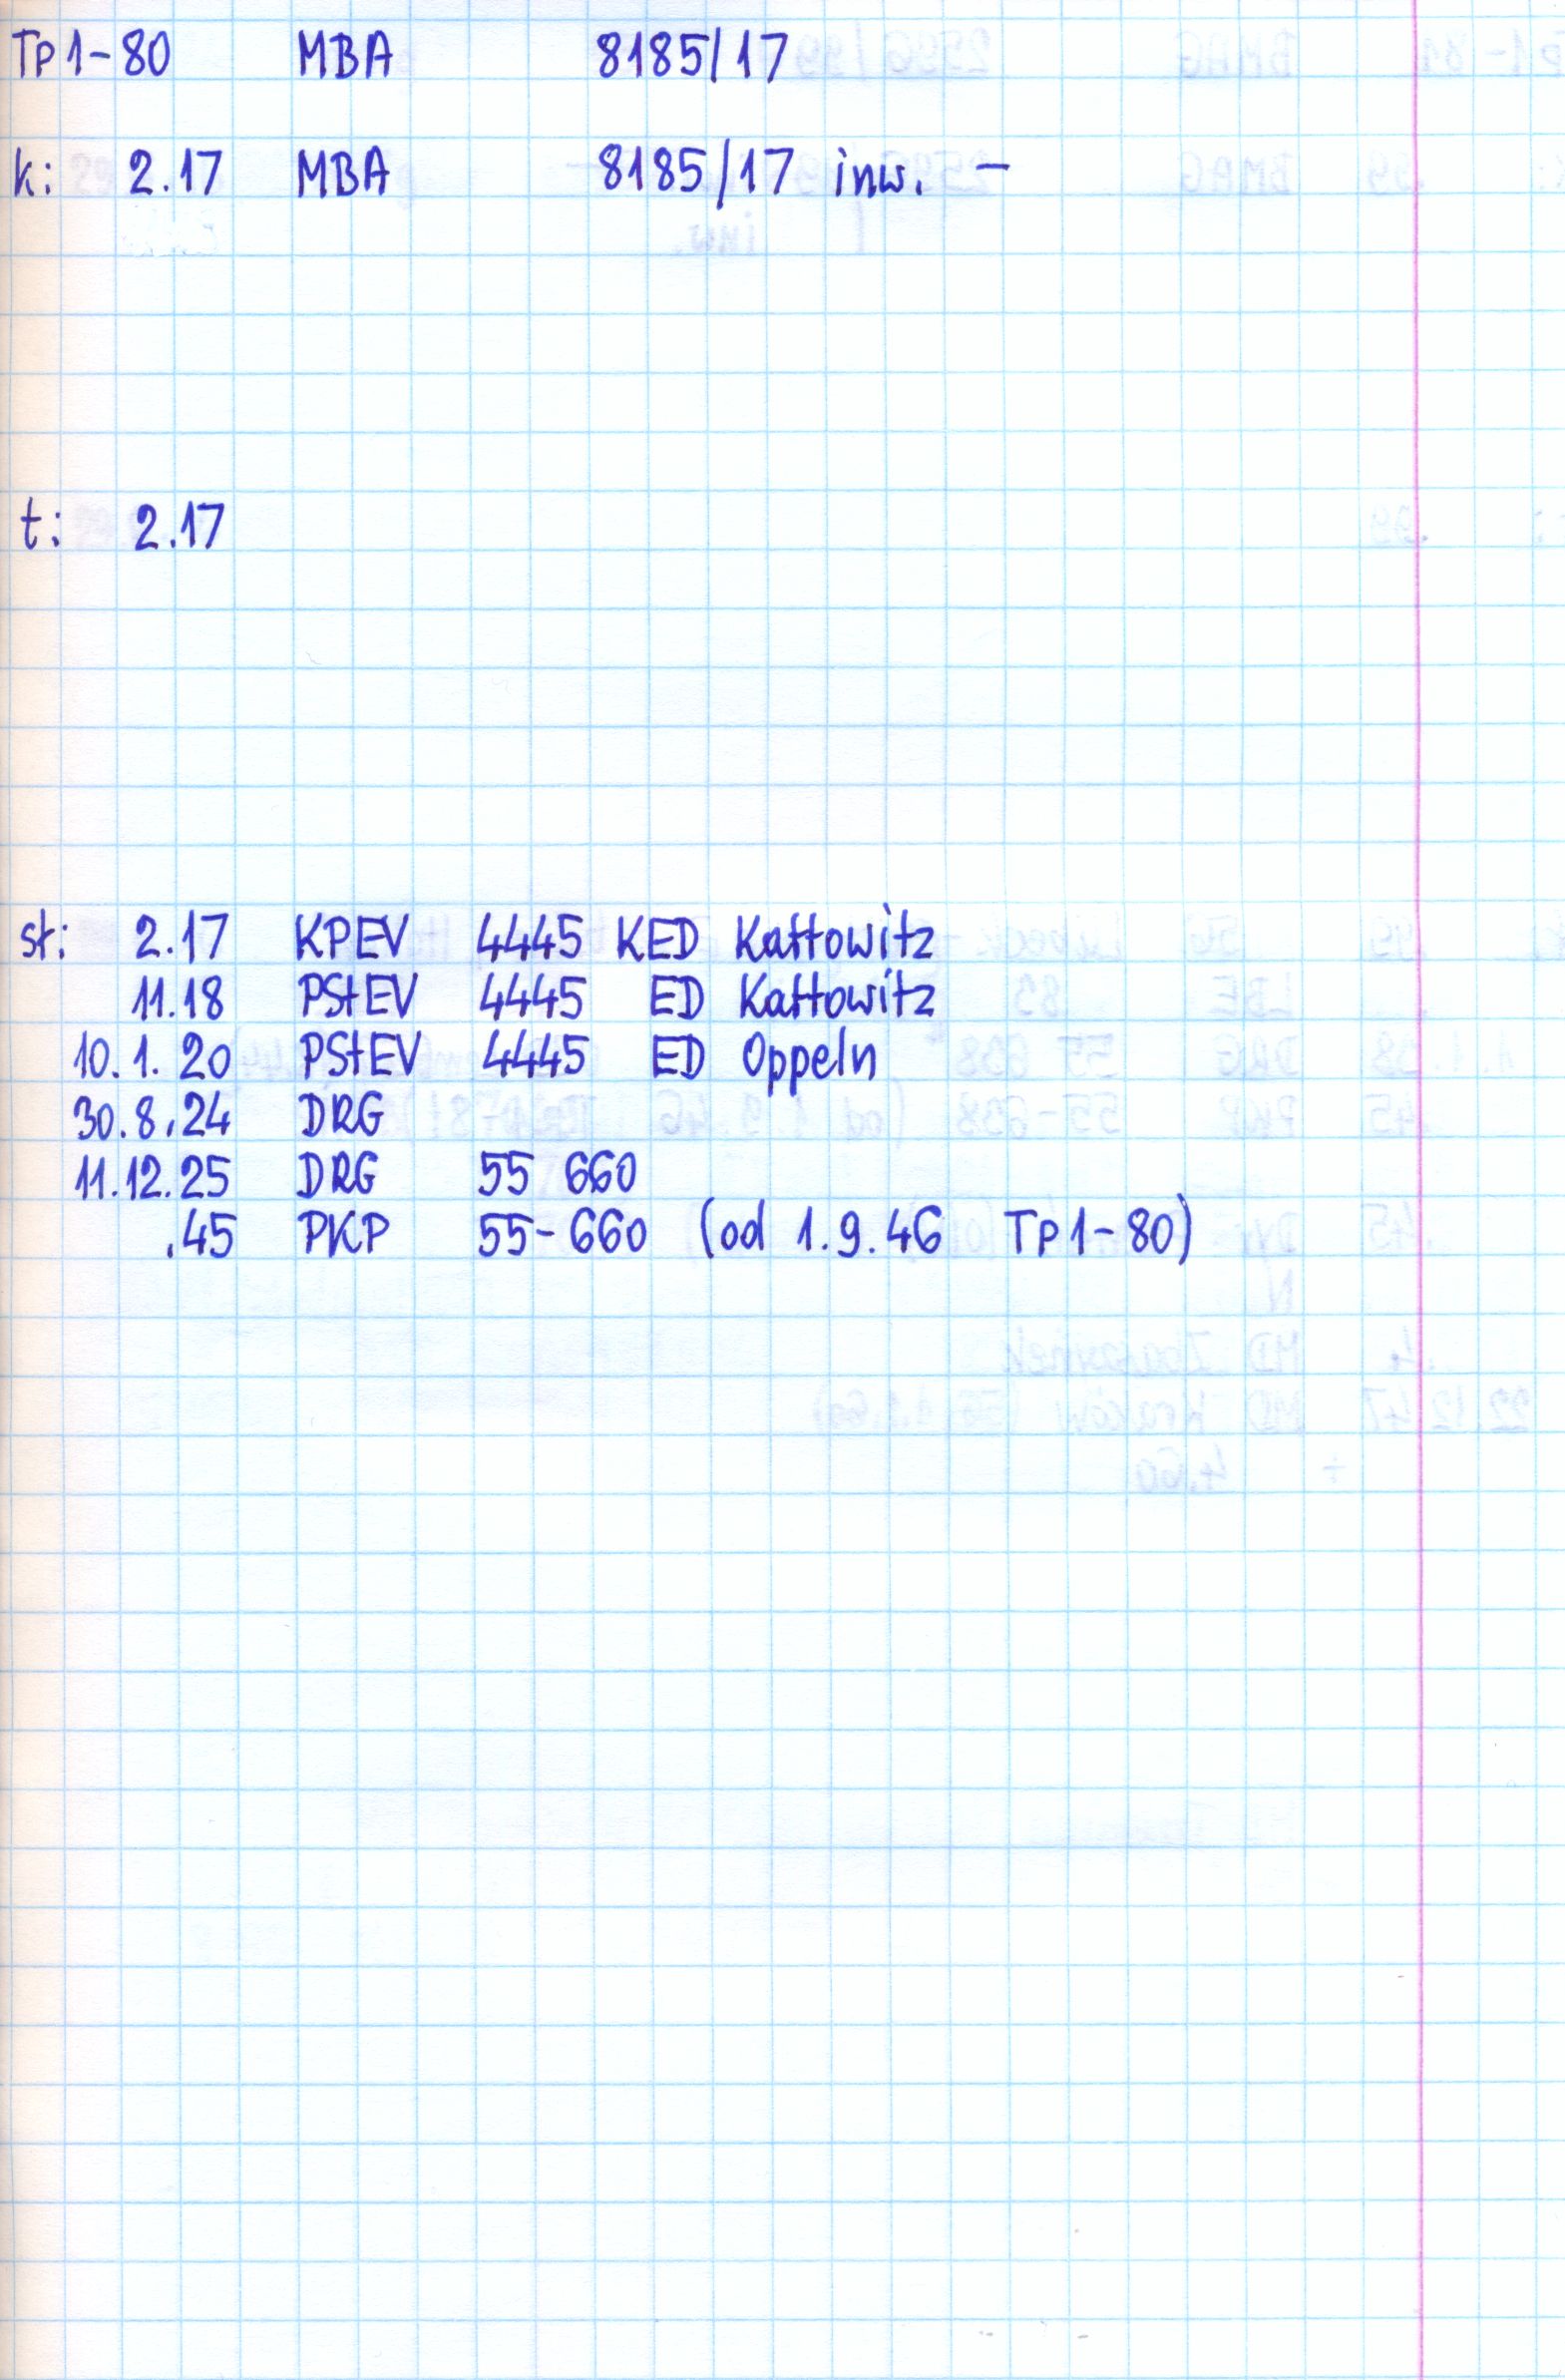 Tp1-80 MBA 8185/17
k: 2.17 MBA 8185/17 inw. -
t: 2.17
st: 2.17 KPEV 4445 KED Kattowitz
11.18 PStEV 4445 ED Kattowitz
10.1.20 PStEV 4445 ED Oppeln
30.8.24 DRG
11.12.25 DRG 55 660
.45 PKP 55-660 (od 1.9.46 Tp1-80)